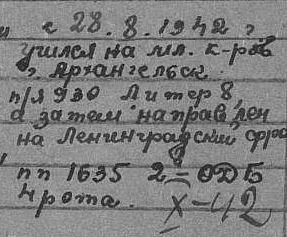 и с 28.8.1942 г
учился на мл. к-ров
г. Архангельск
п/я 930 Литер 8
а затем направлен
на Ленинградский фро
в
пп 1635 2-ОДБ
4 рота. X-42